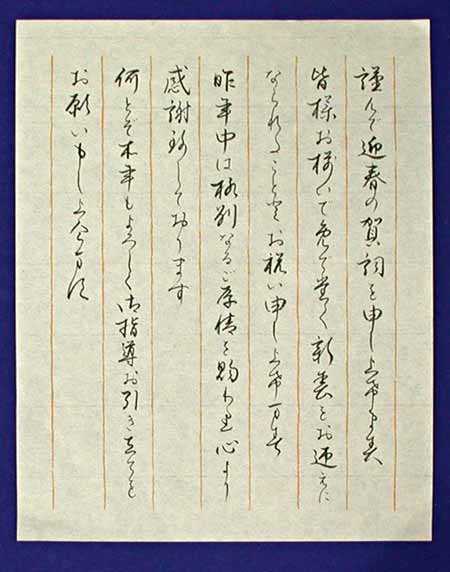 謹んで迎春の賀詞を申し上げます
皆様お揃いでめでたく新春をお迎えに
なられたことゝお祝い申し上げます
昨年中は格別なるご厚情を賜り衷心より
感謝致しております
何とぞ本年もよろしく御指導お引き立てを
お願い申し上げます